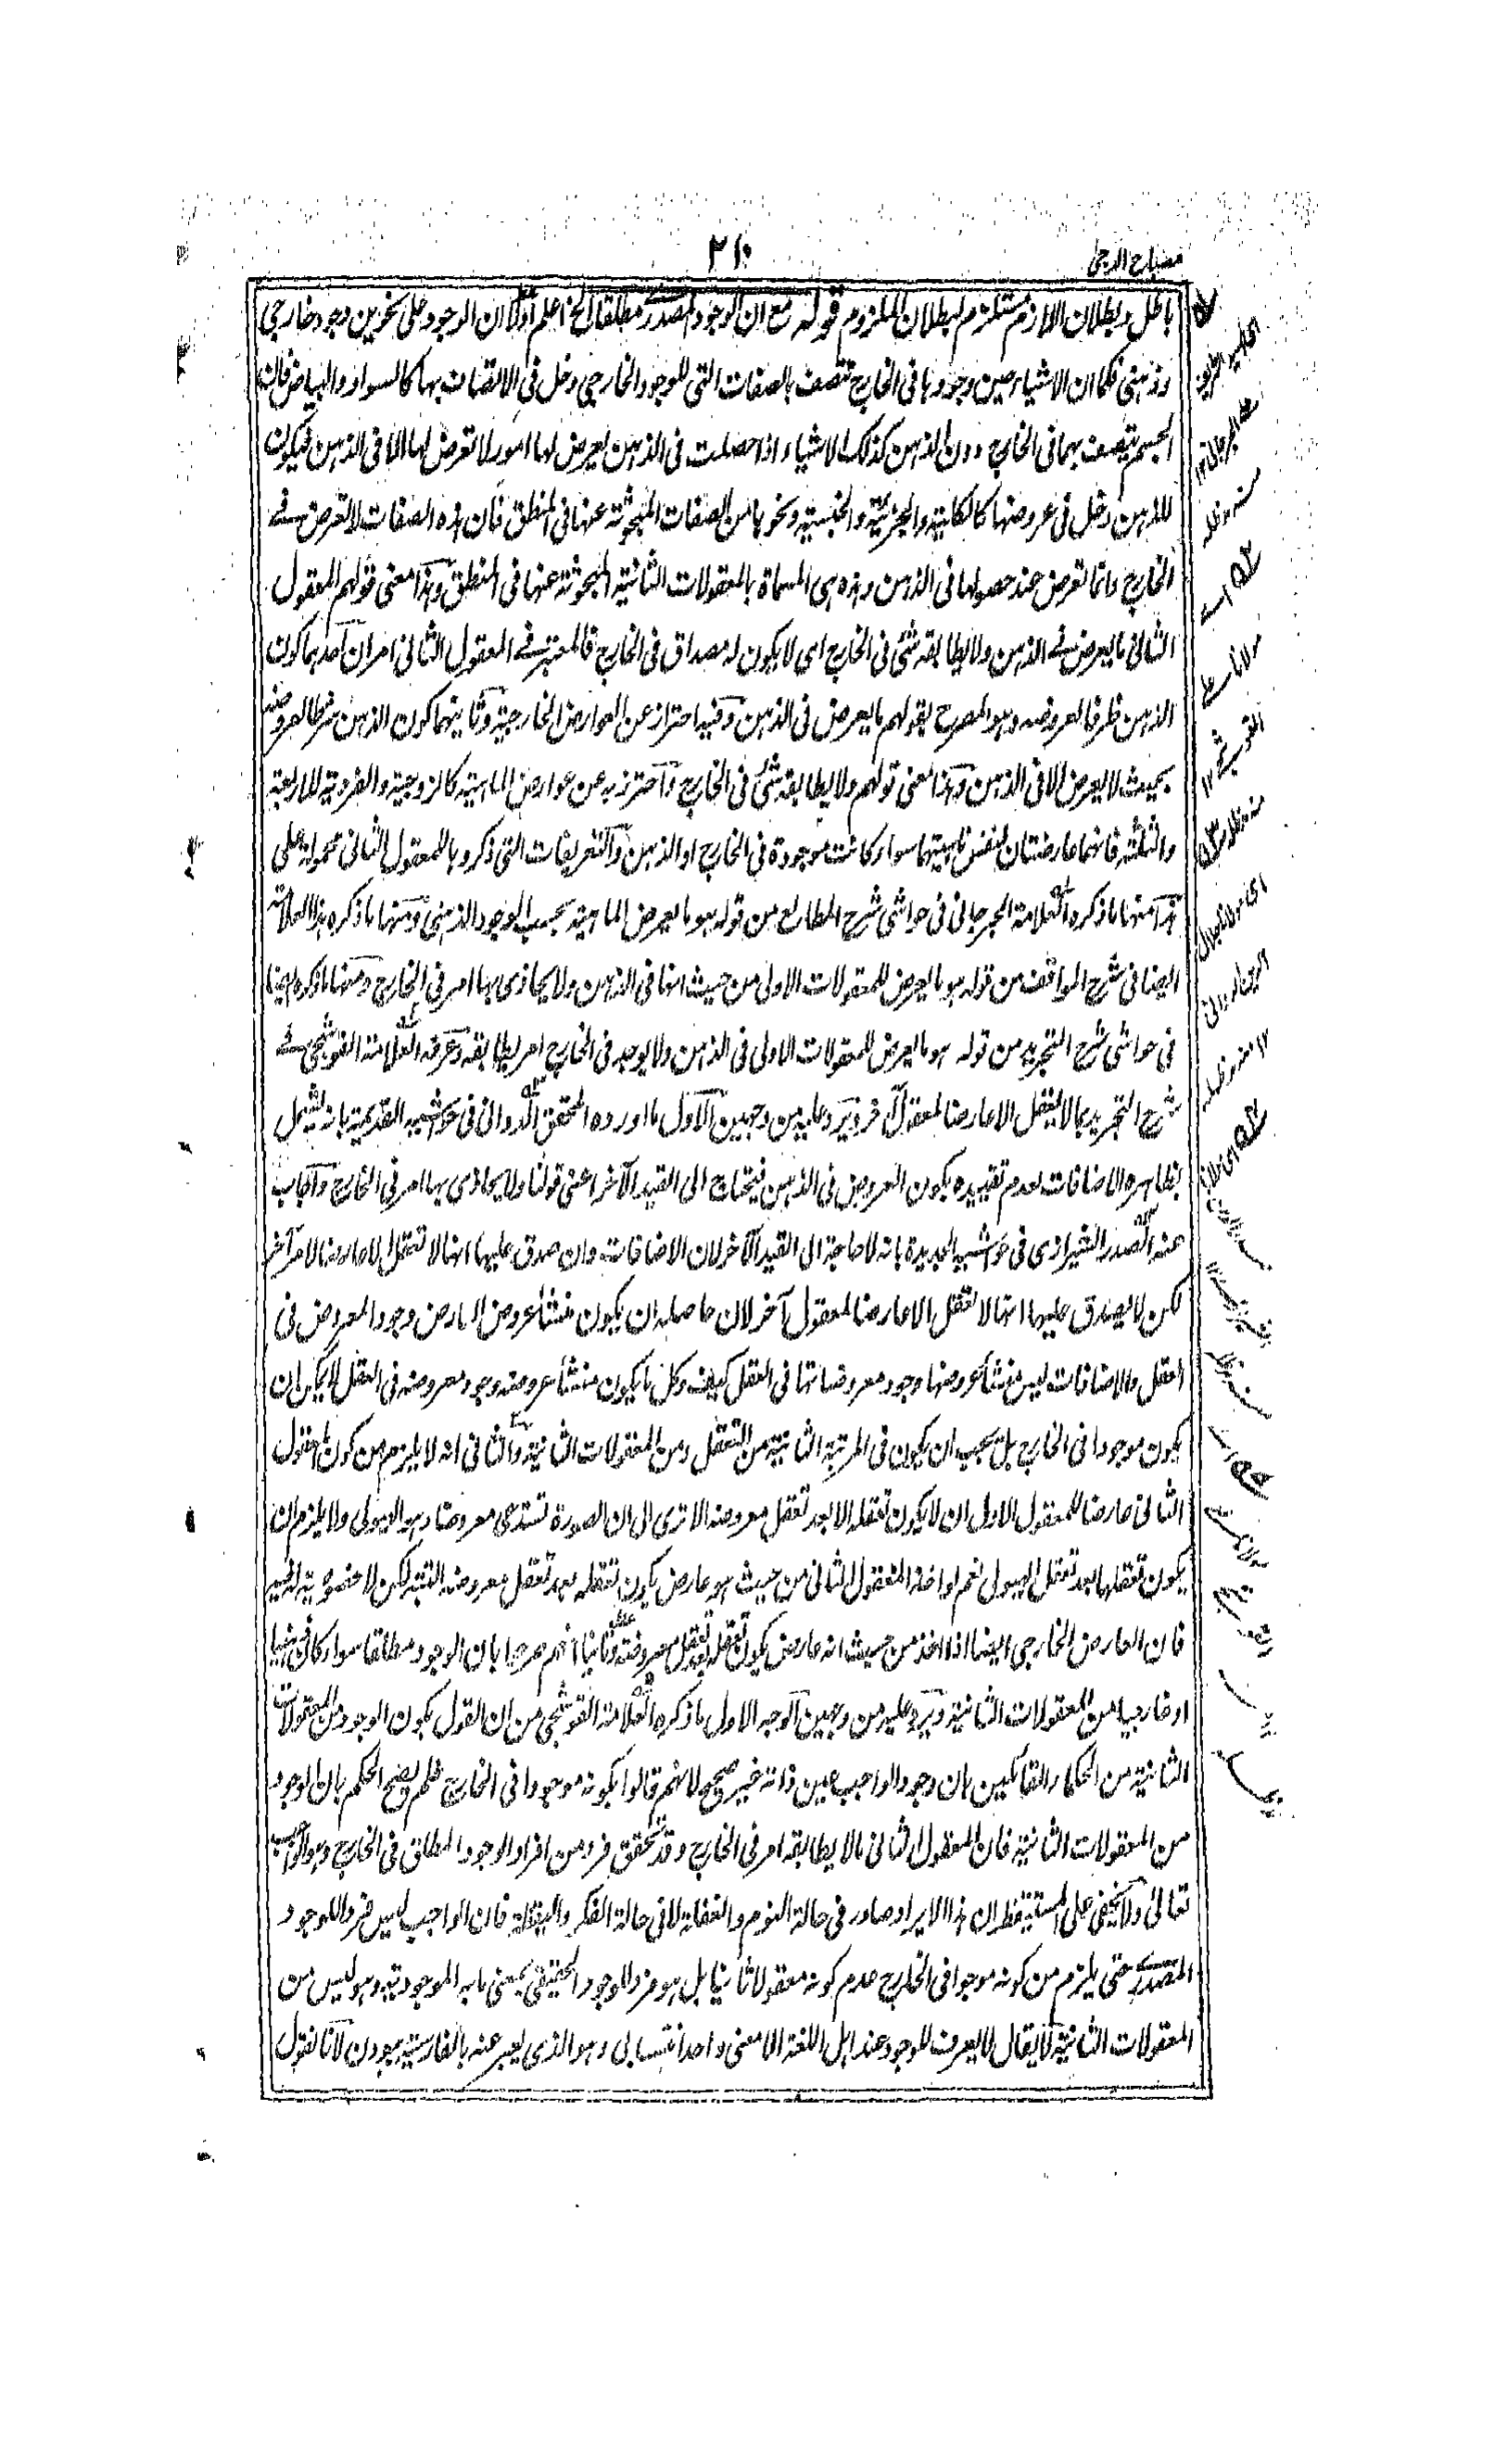 مصباح الدجى
٢١٠
باطل وبطلان اللازم مستلزم لبطلان الملزوم قوله مع ان الوجود المصدرى مطلقا الخ اعلم اولا ان الوجود على نحوين وجود خارجي
وذهني فكما ان الاشياء حين وجودها في الخارج تتصف بالصفات التي للوجود الخارجي دخل في الاتصاف بها كالسواد والبياض فان
الجسم يتصف بهما في الخارج دون الذهن كذلك الاشياء اذا حصلت في الذهن يعرض لها امور لا تعرض لها الا في الذهن فيكون
للذهن دخل في عروضها كالكلية والجزئية والجنسية ونحوها من الصفات المبحوثة عنها في المنطق فان هذه الصفات لا تعرض في
الخارج وانما تعرض عند حصولها في الذهن وهذه هي المسماة بالمعقولات الثانية المبحوثة عنها في المنطق وهذا معنى قولهم المعقول
الثاني ما يعرض في الذهن ولا يطابقه شئ في الخارج اى لا يكون له مصداق في الخارج فالمعتبر في المعقول الثاني امران احدهما كون
الذهن ظرفا لعروضه وهو المصرح بقولهم ما يعرض في الذهن وفيه احتراز عن العوارض الخارجية وثانيهما كون الذهن شرطا لعروضه
بحيث لا يعرض الا في الذهن وهذا معنى قولهم ولا يطابقه شئ في الخارج واحترز به عن عوارض الماهية كالزوجية والفردية للاربعة
والثلثة فانهما عارضتان لنفس ماهيتهما سواء كانت موجودة في الخارج او الذهن والتعريفات التي ذكروها للمعقول الثاني محمولة على
هذا منها ما ذكره العلامة الجرجاني في حواشي شرح المطالع من قوله هو ما يعرض الماهية بحسب الوجود الذهني ومنها ما ذكره هذا العلامة
ايضا في شرح المواقف من قوله هو ما يعرض للمعقولات الاولى من حيث انها في الذهن ولا يحاذى بها امر في الخارج ومنها ما ذكره ايضا
في حواشي شرح التجريد من قوله هو ما يعرض للمعقولات الاولى في الذهن ولا يوجد في الخارج امر يطابقه وعرفه العلامة القوشجي في
شرح التجريد بما لا يعقل الا عارضا لمعقول آخر ويرد عليه من وجهين الاول ما اورده المحقق الدواني في حواشيه القديمة بانه يشمل
بظاهره الاضافات لعدم تقييده بكون العروض في الذهن فيحتاج الى القيد الآخر اعني قولنا ولا يحاذى بها امر في الخارج واجاب
عنه الصدر الشيرازى في حواشيه الجديدة بانه لا حاجة الى القيد الآخر لان الاضافات وان صدق عليها انها لا تعقل الا عارضا لامر آخر
لكن لا يصدق عليها انها لا تعقل الا عارضا لمعقول آخر لان حاصله ان يكون منشأ عروض العارض وجود المعروض في
العقل والاضافات ليس منشأ عروضها وجود معروضاتها في العقل كيف وكل ما يكون منشأ عروضه وجود معروضه في العقل لا يمكن ان
يكون موجودا في الخارج بل يجب ان يكون في المرتبة الثانية من التعقل ومن المعقولات الثانية والثاني انه لا يلزم من كون المعقول
الثاني عارضا للمعقول الاول ان لا يكون تعقله الا بعد تعقل معروضه الا ترى الى ان الصورة تستدعى معروضا وهو الهيولى ولا يلزم ان
يكون تعقلها بعد تعقل الهيولى نعم لو اخذ المعقول الثاني من حيث هو عارض يكون تعقله بعد تعقل معروضه البتة لكن لا خصوصية له فيه
فان العارض الخارجي ايضا اذا اخذ من حيث انه عارض يكون تعقله بعد تعقل معروضه وثانيا انهم صرحوا بان الوجود مطلقا سواء كان ذهنيا
او خارجيا من المعقولات الثانية ويرد عليه من وجهين الوجه الاول ما ذكره العلامة القوشجي من ان القول بكون الوجود من المعقولات
الثانية من الحكماء القائلين بان وجود الواجب عين ذاته غير صحيح لانهم قالوا بكونه موجودا في الخارج فلم يصح الحكم بان الوجود
من المعقولات الثانية فان المعقول الثاني ما لا يطابقه امر في الخارج وقد تحقق فرد من افراد الوجود المطلق في الخارج وهو الواجب
تعالى ولا يخفى على المستيقظ ان هذا الايراد صادر في حالة النوم والغفلة لا في حالة الفكر واليقظة فان الواجب ليس فردا للوجود
المصدرى حتى يلزم من كونه موجودا في الخارج عدم كونه معقولا ثانيا بل هو فرد للوجود الحقيقي بمعنى ما به الموجودية وهو ليس من
المعقولات الثانية لا يقال لا يعرف للوجود عند اهل اللغة الا معنى واحد انتسابى وهو الذى يعبر عنه بالفارسية ببودن لانا نقول